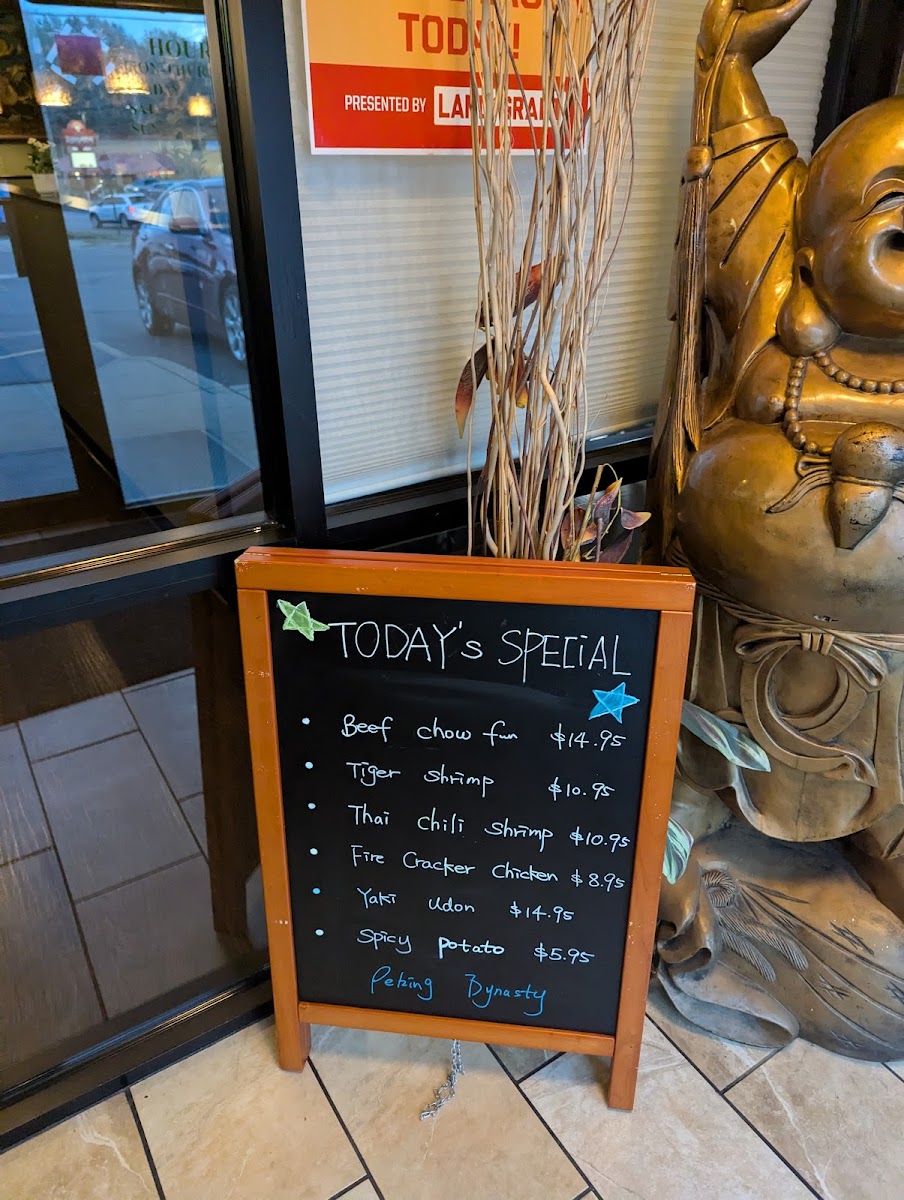 HOUR
TODAY!
PRESENTED BY
TODAY's SPECIAL
Beef chow fun $14.95
Tiger shrimp $10.95
Thai chili shrimp $10.95
Fire Cracker Chicken $8.95
Yaki Udon $14.95
Spicy potato $5.95
Peking Dynasty